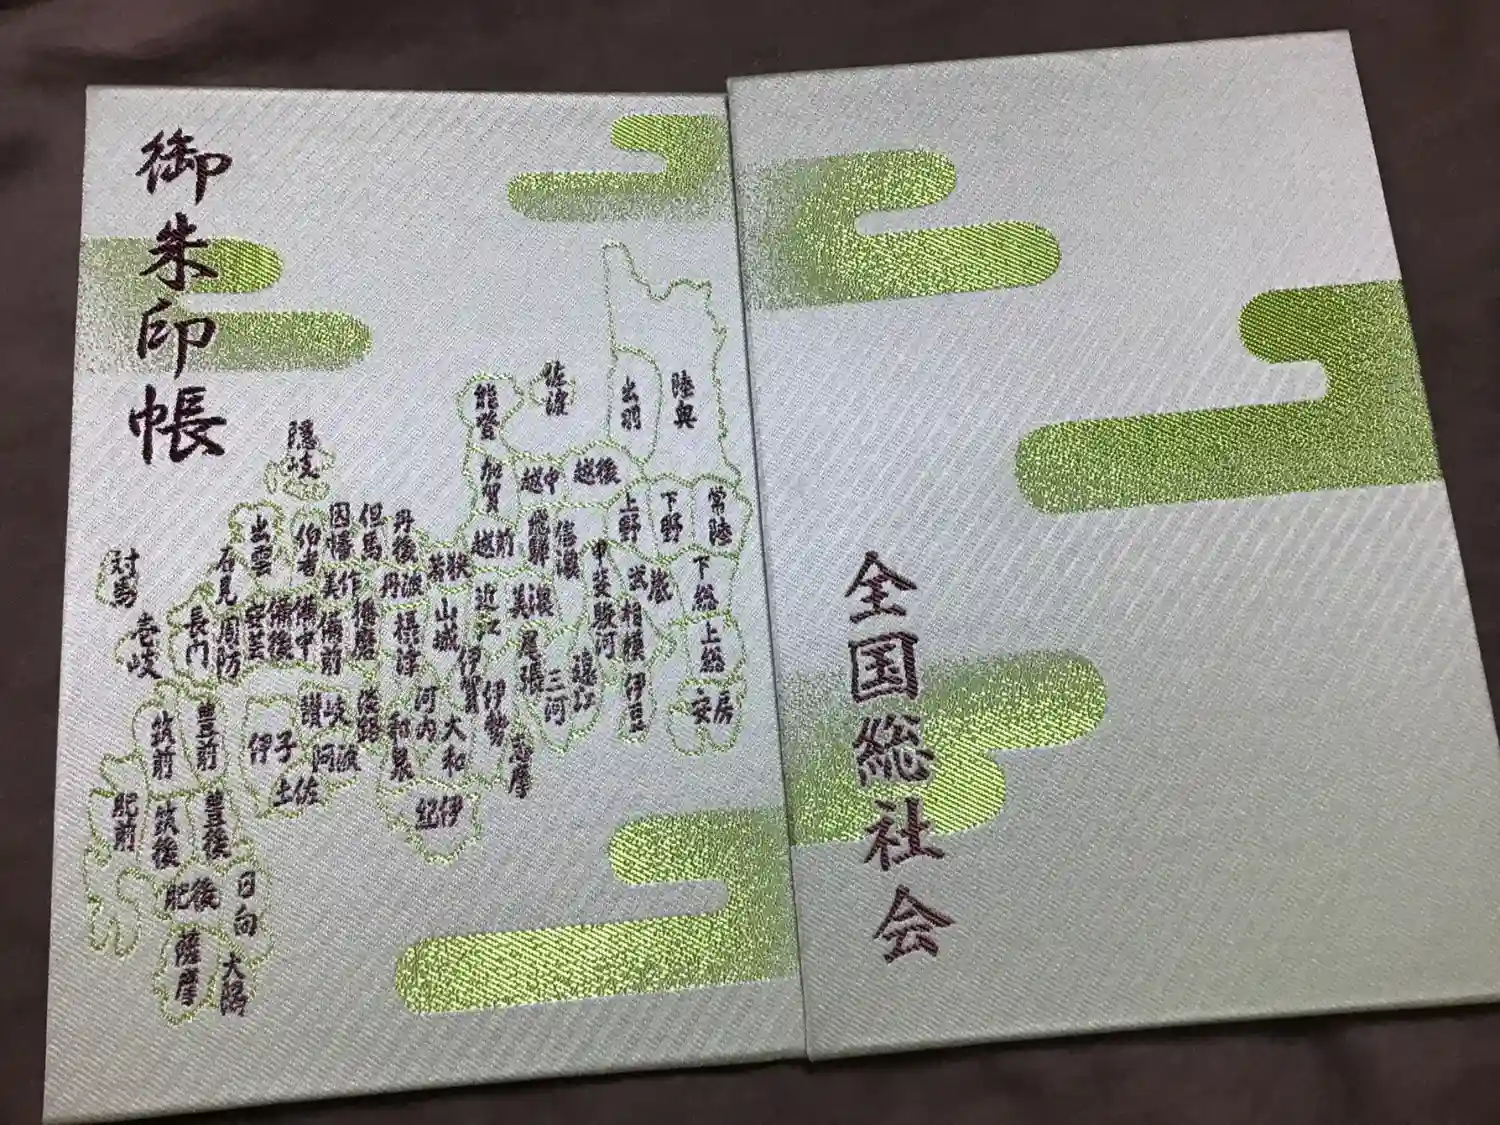 御朱印帳
陸奥
出羽
佐渡
能登
加賀
越中
越後
隠岐
上野
下野
常陸
出雲
伯耆
因幡
但馬
丹後
若狭
越前
飛騨
信濃
甲斐
武蔵
下総
上総
安房
相模
伊豆
駿河
遠江
三河
尾張
美濃
近江
山城
丹波
美作
播磨
摂津
備前
備中
備後
安芸
石見
周防
長門
対馬
壱岐
伊賀
伊勢
志摩
大和
河内
和泉
紀伊
淡路
讃岐
阿波
伊予
土佐
筑前
豊前
肥前
筑後
豊後
肥後
日向
薩摩
大隅
全国総社会